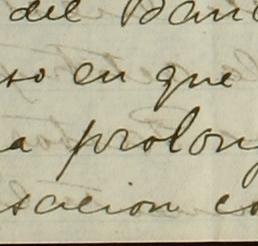 del Banc
so en que
a prolong
sacion es